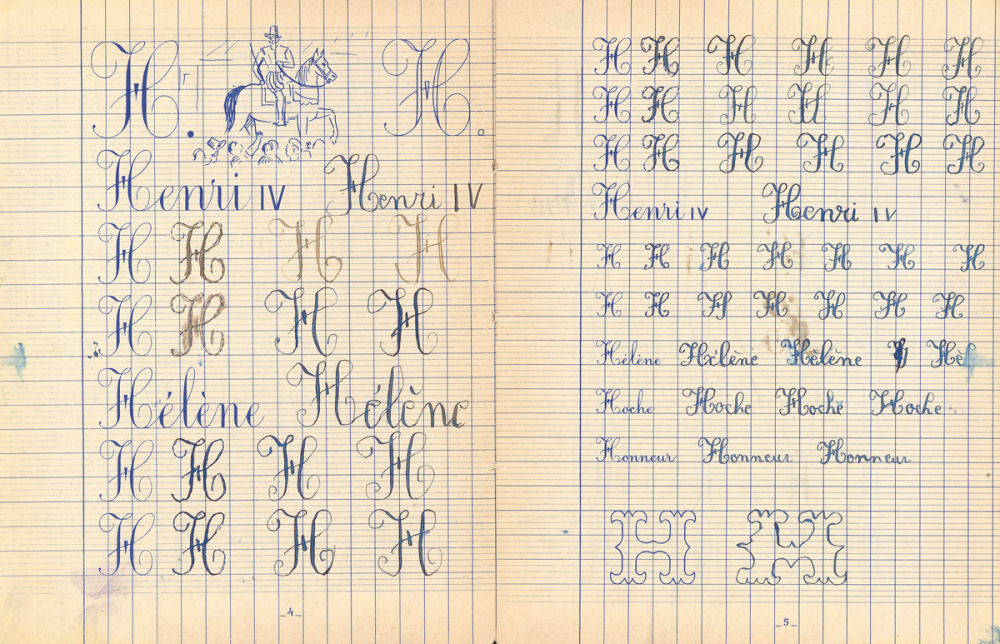 H. H.
Henri IV Henri IV
H H H H
H H H H
Hélène Hélène
H H H H
H H H H
_4_
H H H H H H
H H H H H H
H H H H H H
Henri IV Henri IV
H H H H H H H
H H H H H H H
Hélène Hélène Hélène Hél
Hoche Hoche Hoche Hoche
Honneur Honneur Honneur
H H
_5_